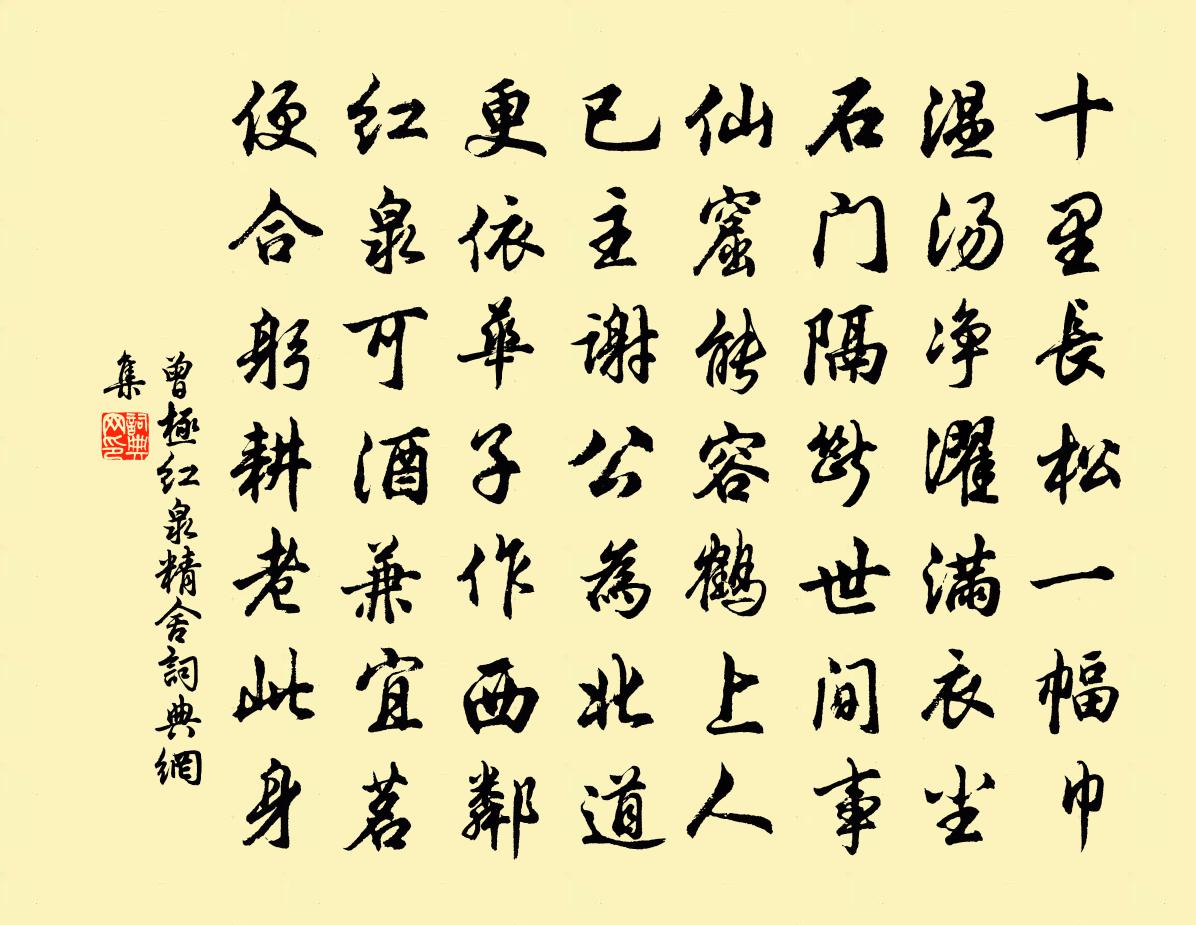 十里長松一幅巾
温汤净濯满衣尘
石门隔断世间事
仙窟能容鹤上人
已主謝公為北道
更依華子作西鄰
红泉可酒兼宜茗
便合躬耕老此身
曾極红泉精舍詞典網
集
詞典网印